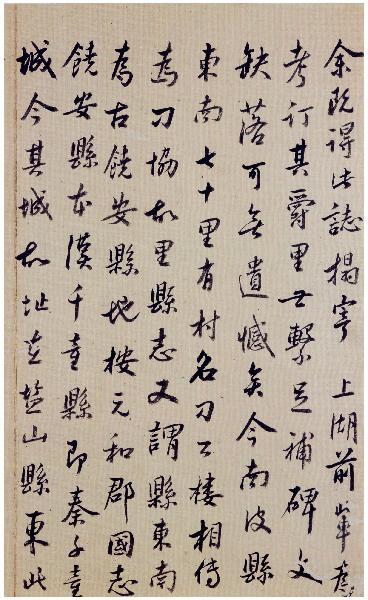 余既得此誌搨寄 上湖前輩
考訂其爵里世繫足補碑文
缺落可無遺憾矣今南皮縣
東南七十里有村名刁公樓相傳
為刁協故里縣志又謂縣東南
為古饒安縣地按元和郡國志
饒安縣本漢千童縣即秦千童
城今其城故址在鹽山縣東北